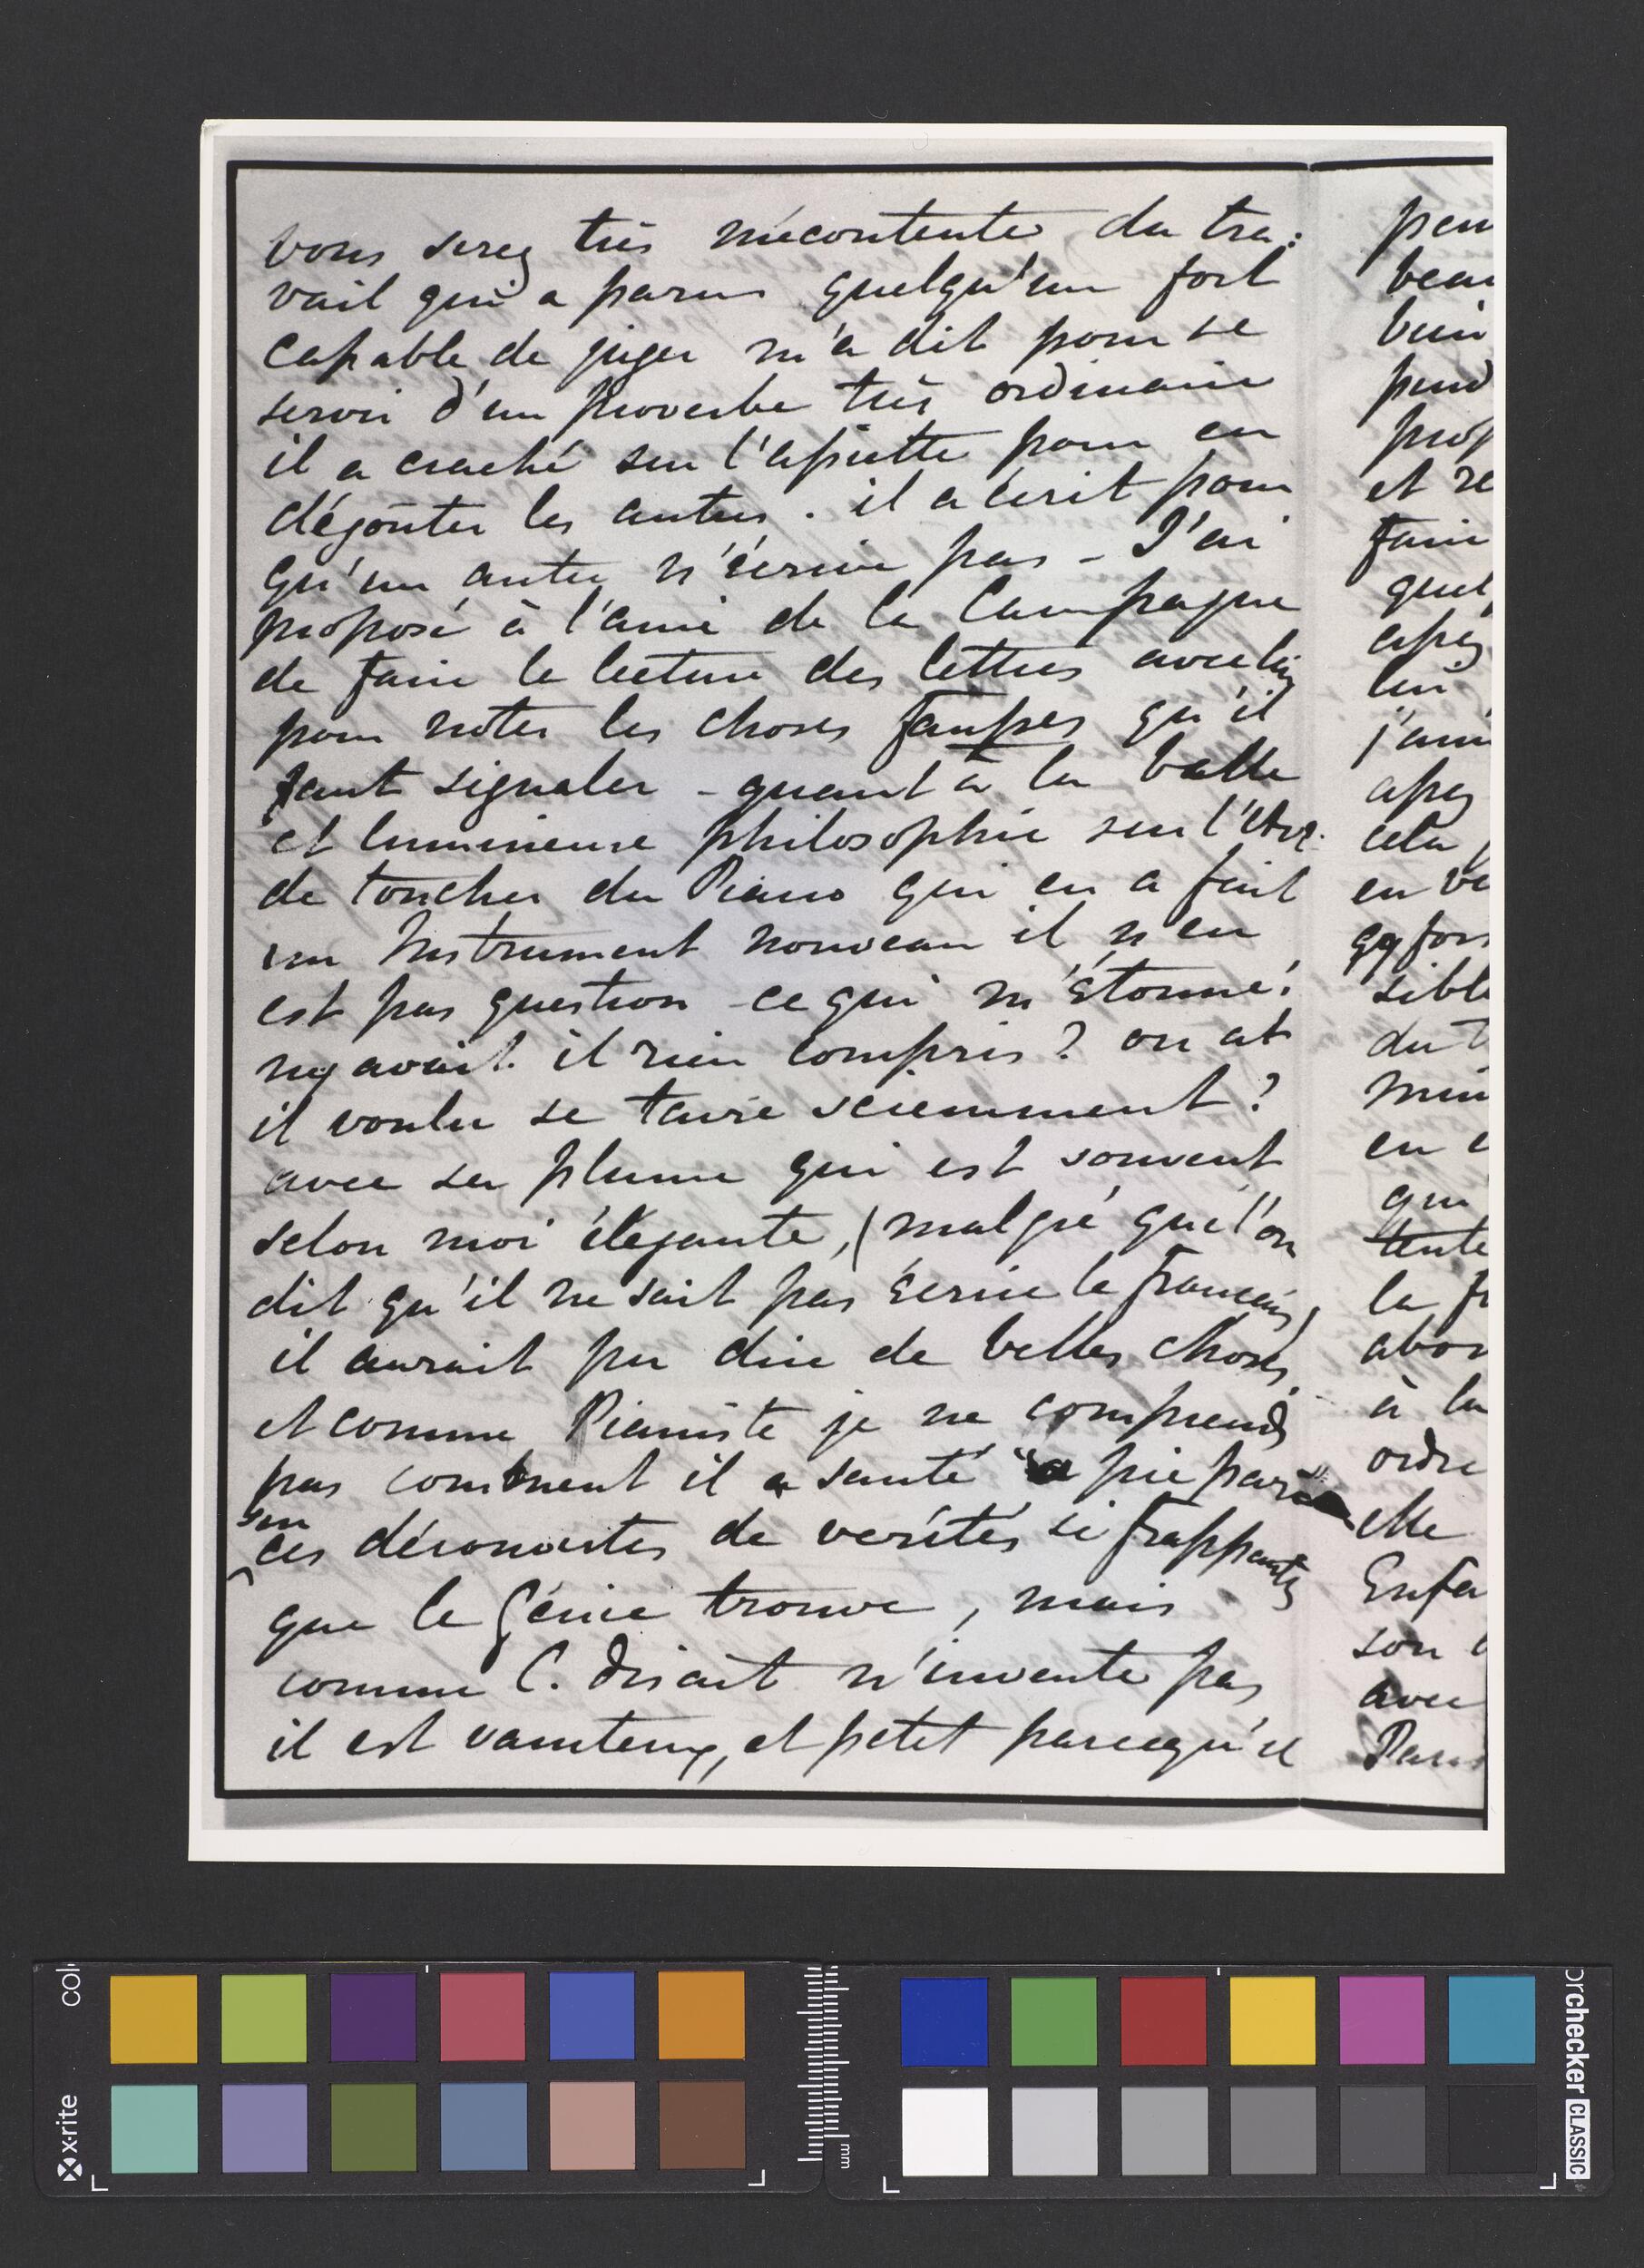 vous serez très mécontente du tra:
vail qui a paru quelqu'un fort
capable de juger m'a dit pour se
servir d'un proverbe très ordinaire
il a craché sur l'assiette pour en
dégoûter les autres. il a écrit pour
qu'un autre n'écrive pas – J'ai
proposé à l'amie de la Campagne
de faire la lecture des lettres avec lui
pour noter les choses fausses qu'il
faut signaler – quant à la belle
et lumineuse philosophie sur l'
de toucher du Piano qui en a fait
un Instrument nouveau il n'en
est pas question – ce qui m'étonne!
ny avait il rien compris? ou at
il voulu se taire sciemment?
avec sa plume qui est souvent
selon moi élégante, (malgré que l'on
dit qu'il ne sait pas écrire le français)
il aurait pu dire de belles choses,
et comme Pianiste je ne comprends
pas comment il a sauté a pié
sur
ces découvertes de verités si frappantes
que le Génie trouve, mais
comme C. disait n'invente pas
il est vaniteux, et petit parcequ'il
peu
beau
bien
pend
prop
et re
faire
quel
après
lui
j'aim
après
cela
en ve
qq fois
sible
du t
min
en
qui
tente
la fr
abor
à la
ordre
elle
Enfa
son
avec
Paris
col
x·rite
mm
orchecker CLASSIC